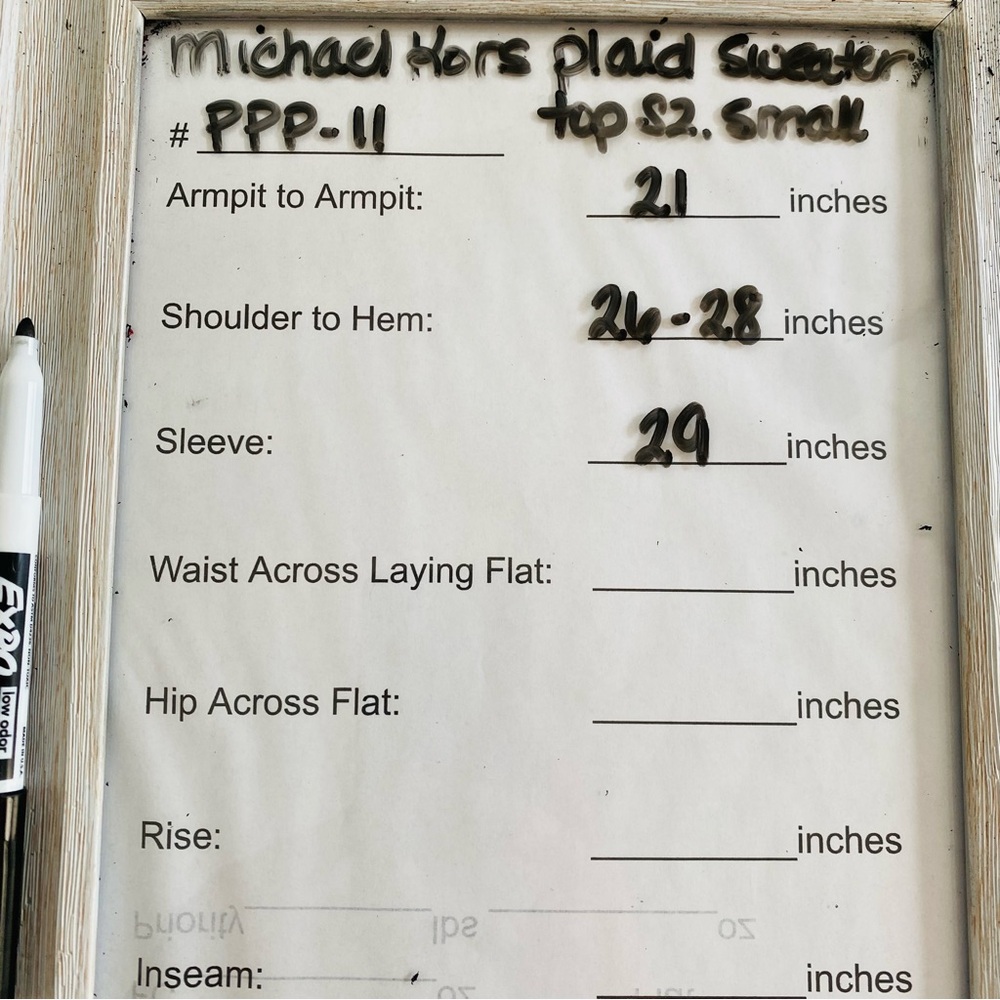 Michael Kors plaid Sweater
# PPP-11 top SZ. Small
Armpit to Armpit: 21 inches
Shoulder to Hem: 26-28 inches
Sleeve: 29 inches
Waist Across Laying Flat: inches
Hip Across Flat: inches
Rise: inches
Priority lbs oz
Inseam: inches
oz
EXPO
low odor